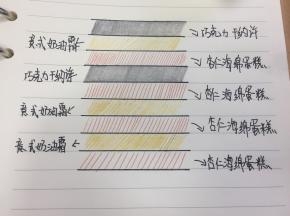 巧克力甘纳许
意式奶油霜
杏仁海绵蛋糕
巧克力甘纳许
杏仁海绵蛋糕
意式奶油霜
杏仁海绵蛋糕
意式奶油霜
杏仁海绵蛋糕